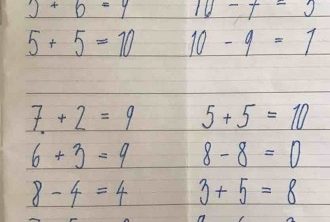 3 + 6 = 9 10 - 7 = 3
5 + 5 = 10 10 - 9 = 1
7 + 2 = 9 5 + 5 = 10
6 + 3 = 9 8 - 8 = 0
8 - 4 = 4 3 + 5 = 8